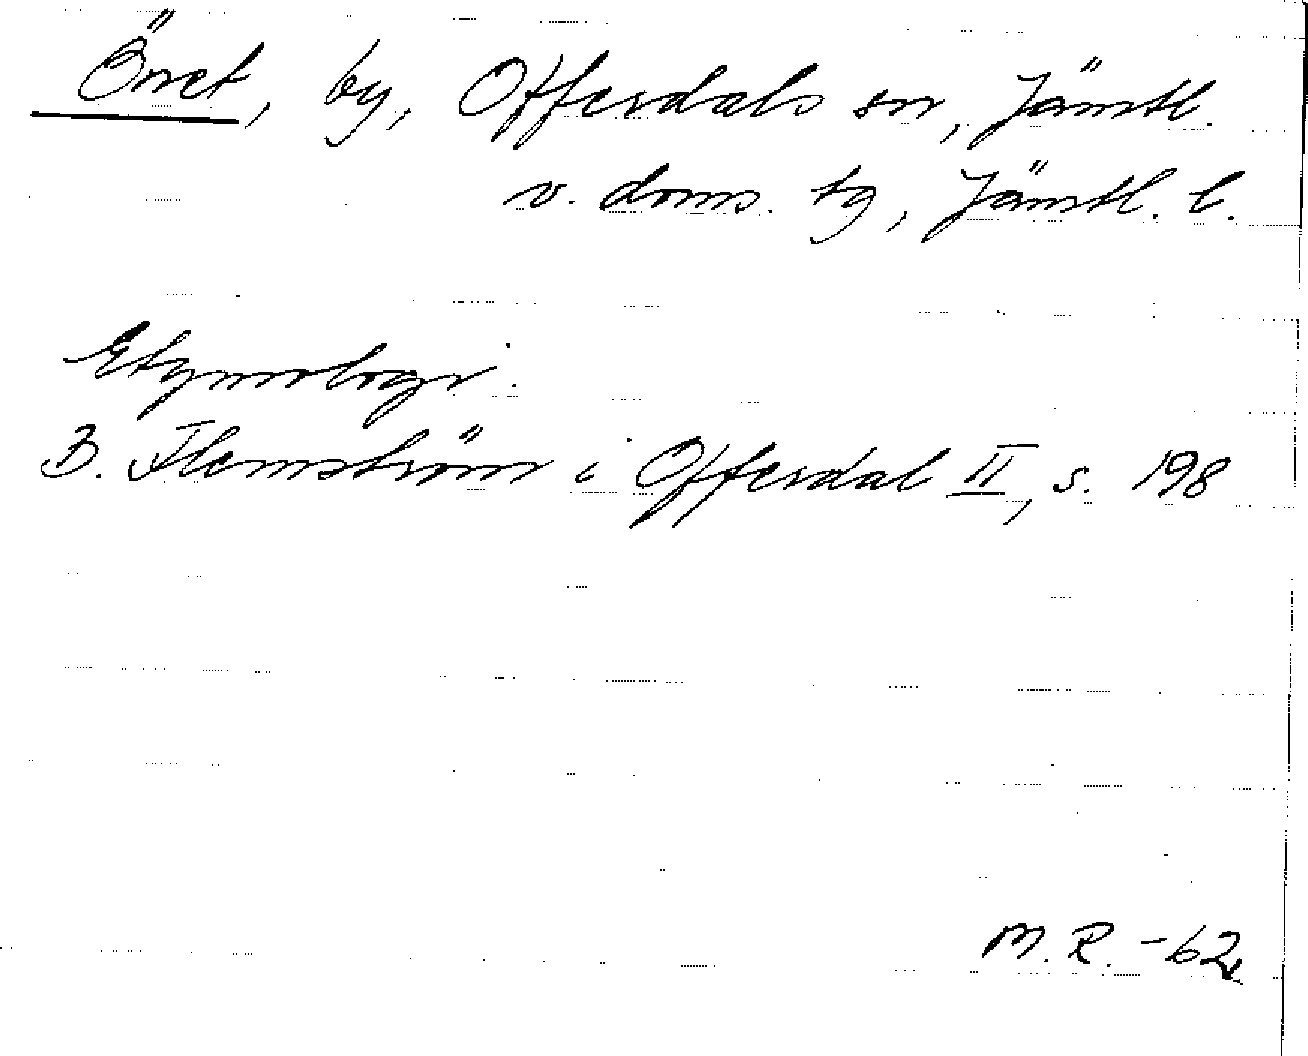 Öret, by, Offerdals sn, Jämtl.
v. doms. tg, Jämtl. l.
Etymologi:
B. Flemström i Offerdal II, s. 198
M. R. -62.